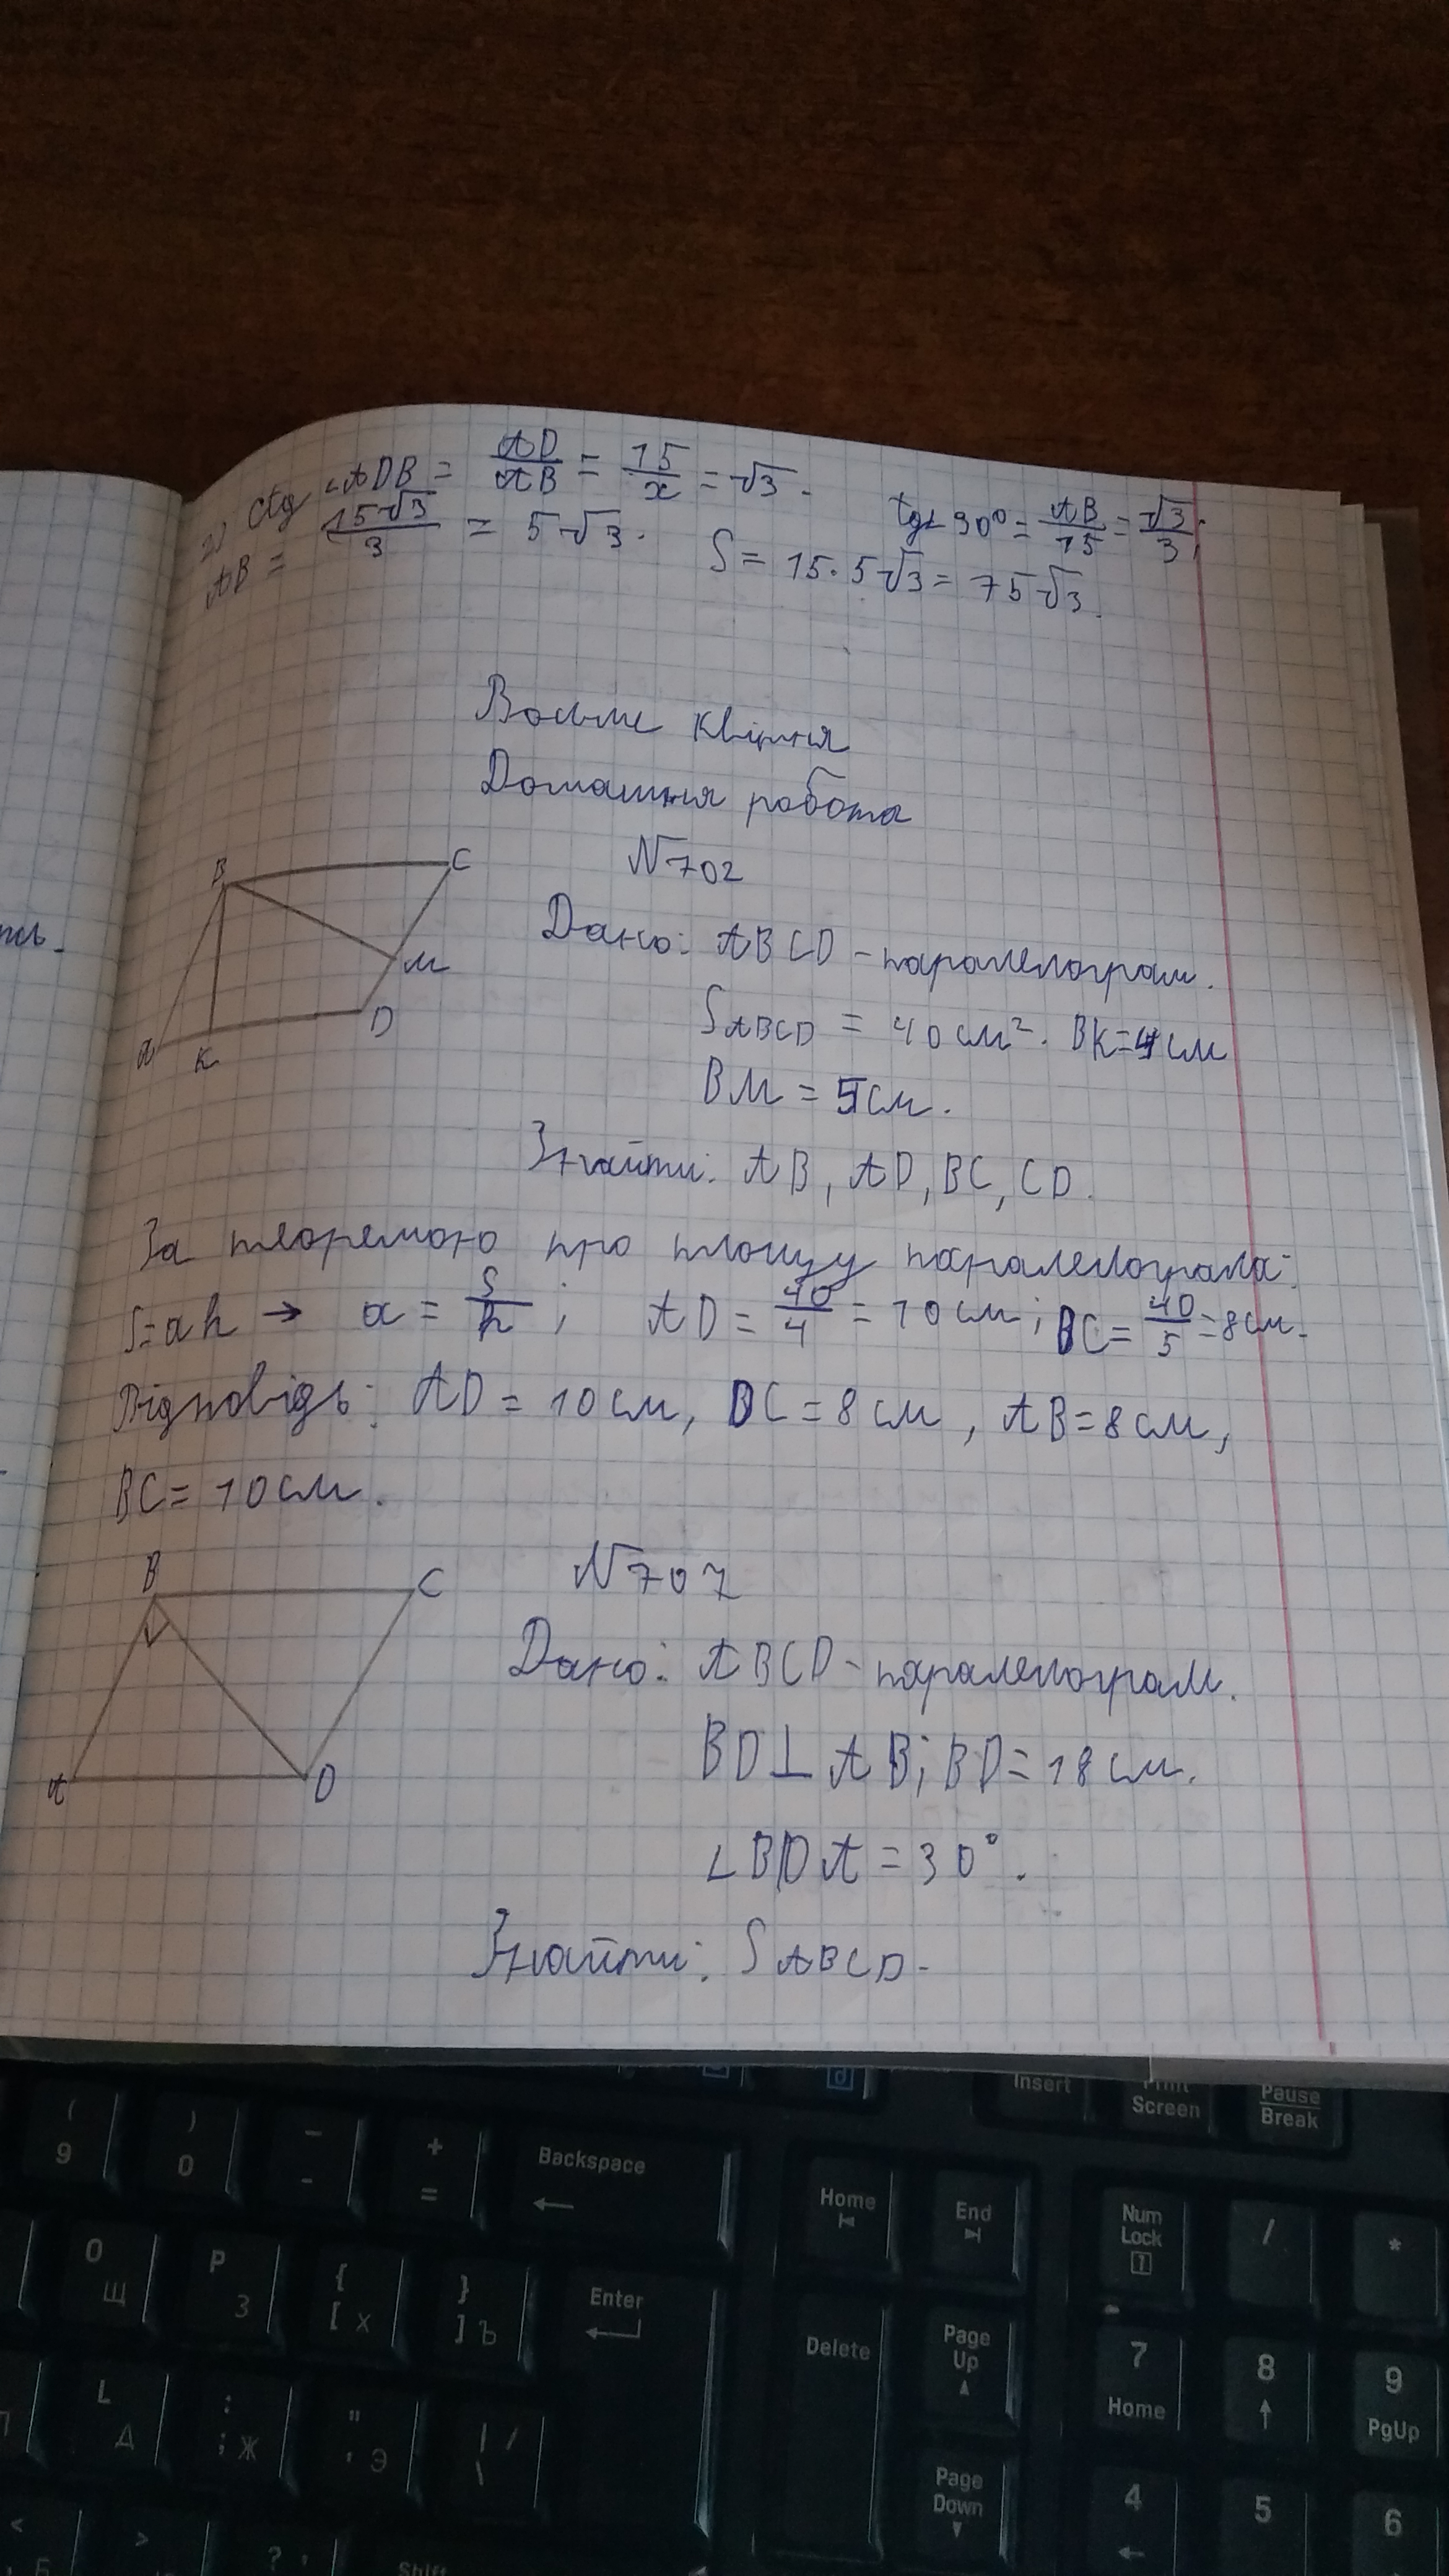 2) ctg ∠ADB = AD/AB = 15/x = √3. tg∠30° = AB/15 = √3/3;
AB = 15√3/3 = 5√3. S = 15·5√3 = 75√3.
Восьме квітня
Домашня робота
N702
B C
M
A K D
Дано: ABCD - паралелограм.
S ABCD = 40 см². BK=4 см
BM = 5 см.
Знайти: AB, AD, BC, CD.
За теоремою про площу паралелограма:
S=ah → a = S/h; AD = 40/4 = 10 см; DC = 40/5 = 8 см.
Відповідь: AD = 10 см, DC = 8 см, AB = 8 см,
BC = 10 см.
N707
B C
A D
Дано: ABCD - паралелограм.
BD⊥AB; BD = 18 см.
∠BDA = 30°.
Знайти: S ABCD.
Insert Print Screen Pause Break
( 9 ) 0 _ - + = Backspace Home End Num Lock / *
O Щ P З { [ Х } ] Ъ Enter Delete Page Up 7 Home 8 9 PgUp
L Д : ; Ж " ' Э | / \ Page Down 4 5 6
< > ? Shift